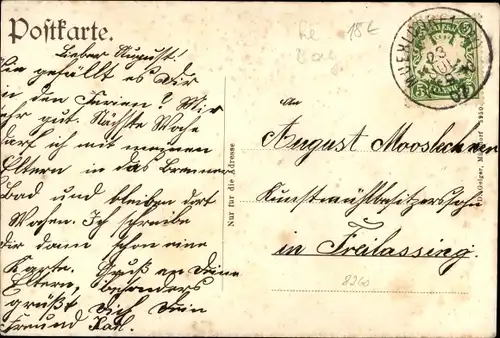 Postkarte.
Lieber August!
Wie gefällt es Dir
in den Ferien? Mir
sehr gut. Nächste Woche
darf ich mit meinen
Eltern in das Brenner
Bad und bleiben dort
Wochen. Ich schreibe
Dir dann schon eine
Karte. Gruß an Deine
Eltern, besonders
grüßt Dich Dein
Freund Karl.
Nur für die Adresse
An
August Mooslechner
Kunstmühlbesitzerssohn
in Freilassing.
8260
15€
MUEHLDORF
23
5